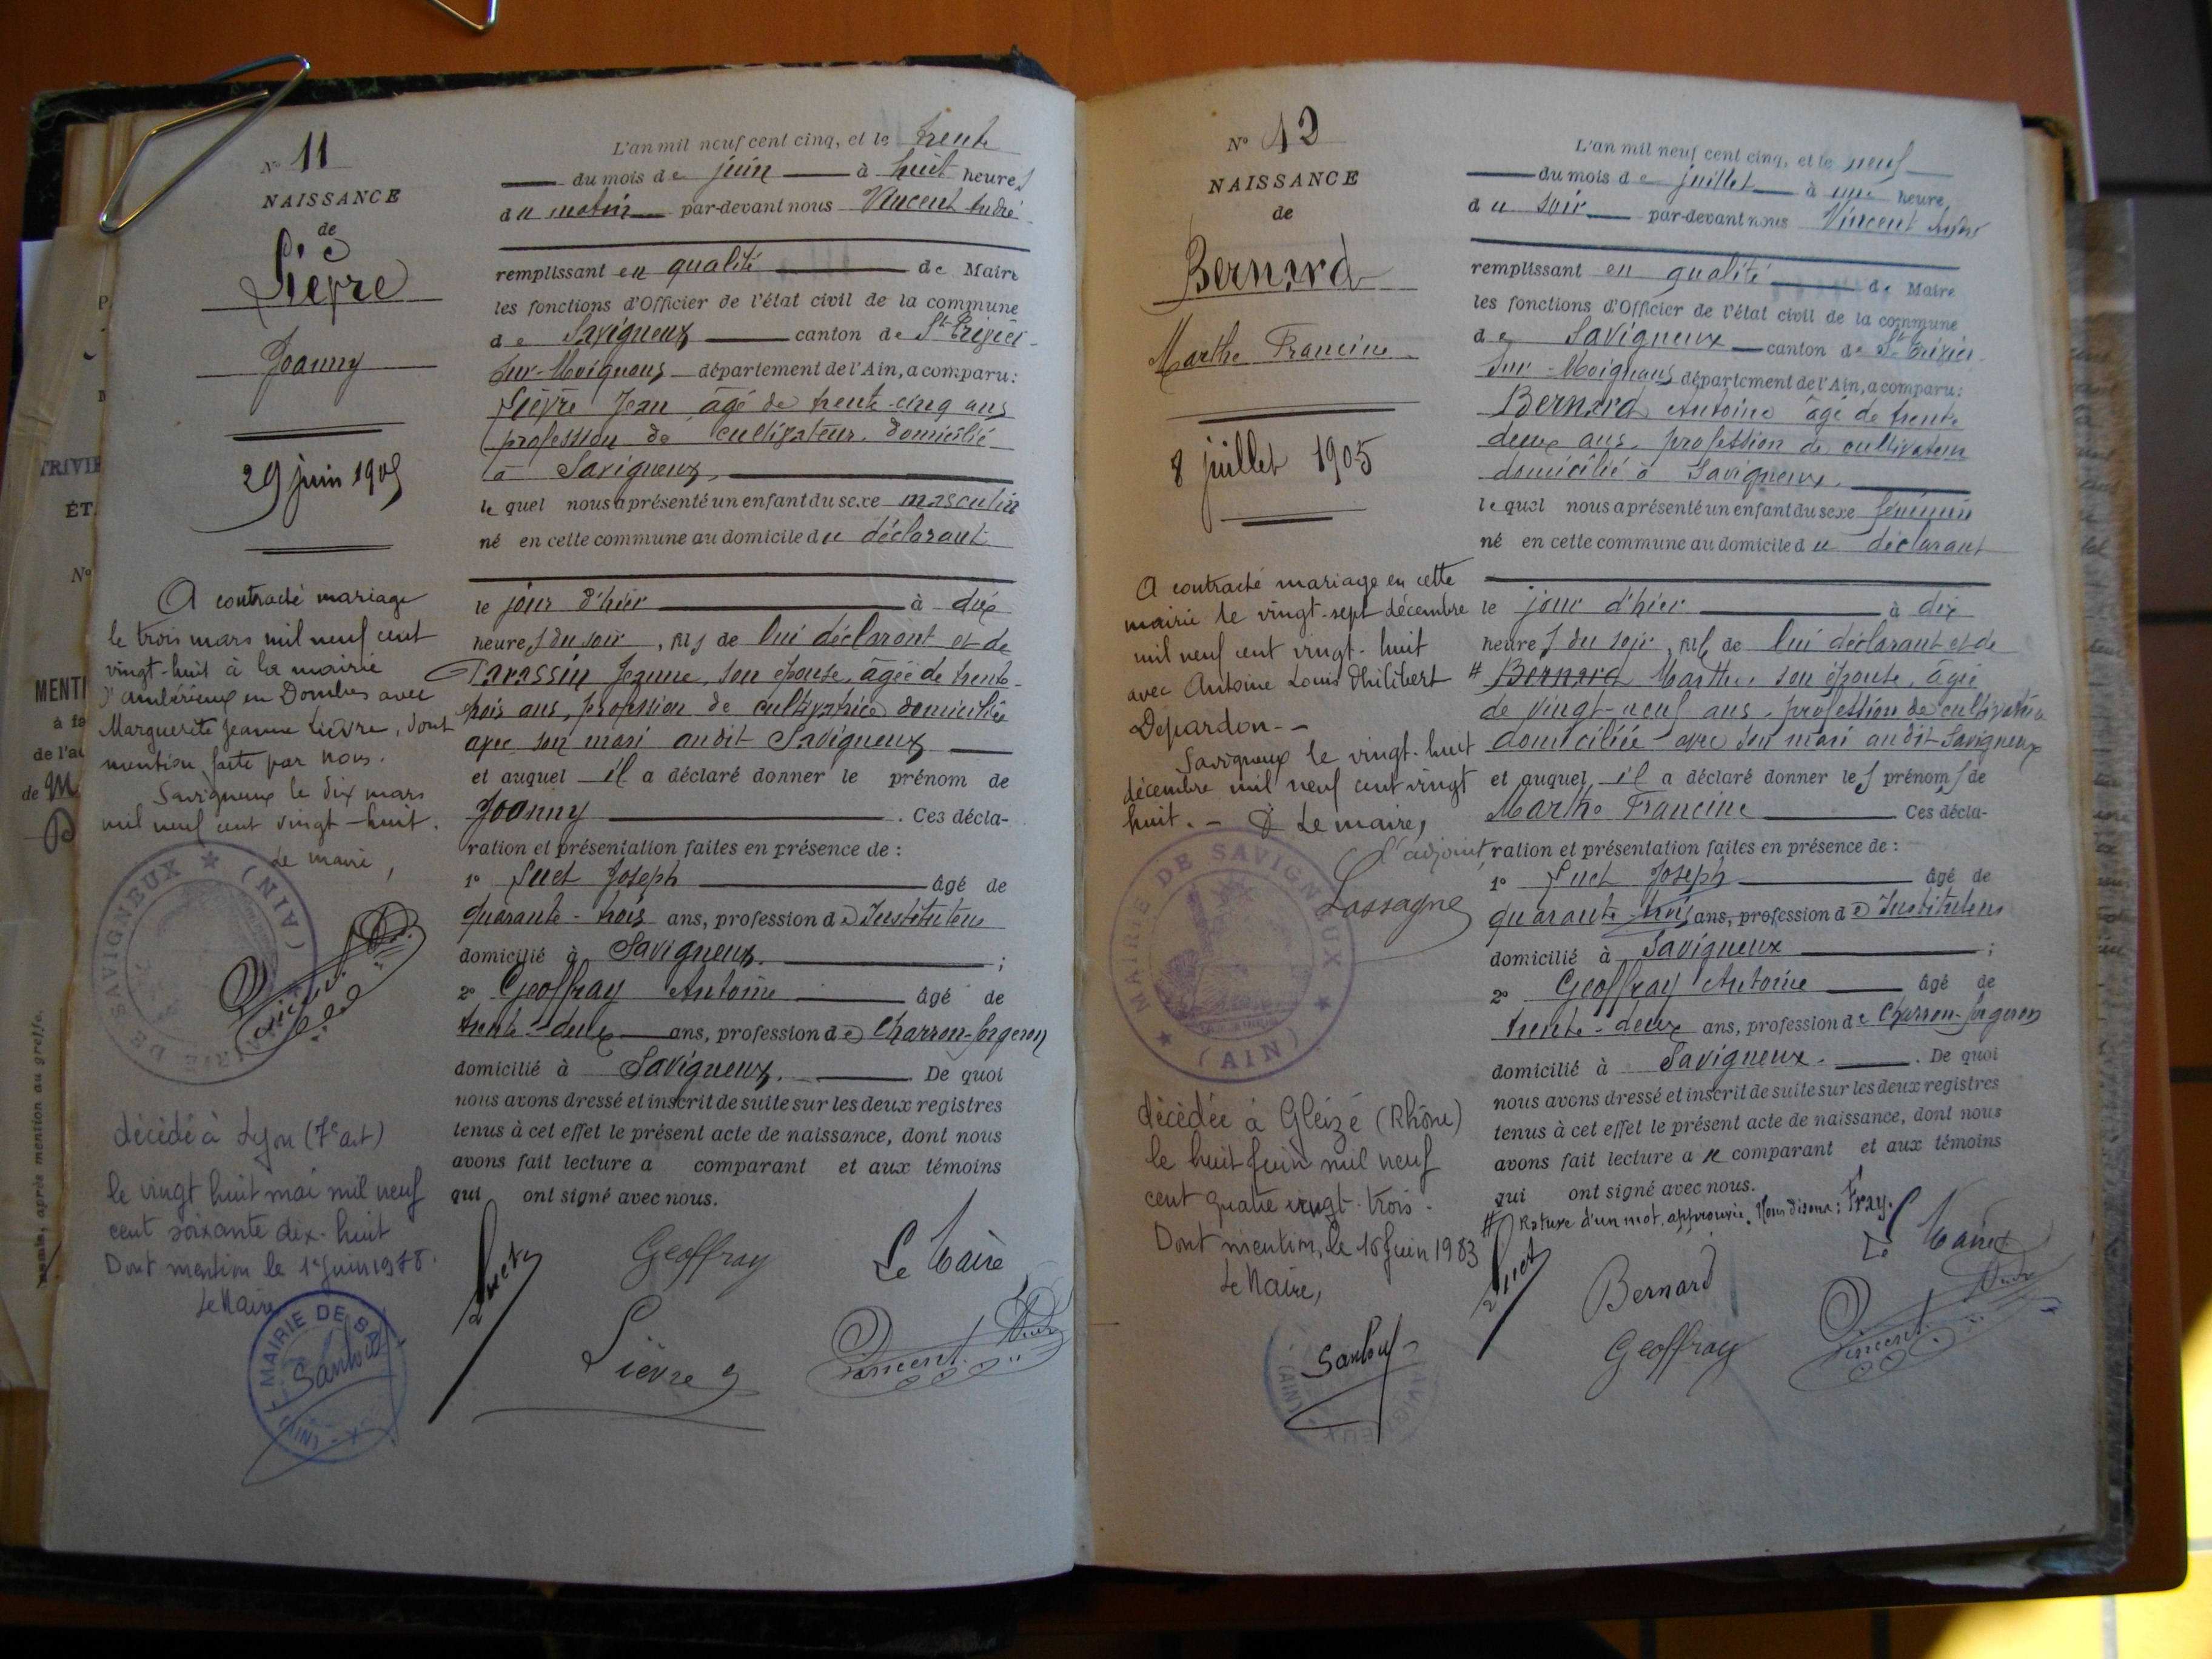 N° 11
NAISSANCE
de
Lièvre
Joanny
29 juin 1905
A contracté mariage
le trois mars mil neuf cent
vingt-huit à la mairie
d'Ambérieux en Dombes avec
Marguerite Jeanne Lièvre, dont
mention faite par nous.
Savigneux le dix mars
mil neuf cent vingt-huit.
Le maire,
MAIRIE DE SAVIGNEUX (AIN)
décédé à Lyon (7e art)
le vingt huit mai mil neuf
cent soixante dix-huit
Dont mention le 1er Juin 1978.
Le Maire
MAIRIE DE SA
(AIN)
L'an mil neuf cent cinq, et le trente
du mois de juin à huit heures
du matin par-devant nous Vincent André
remplissant en qualité de Maire
les fonctions d'Officier de l'état civil de la commune
de Savigneux canton de St Trivier
sur-Moignans département de l'Ain, a comparu:
Lièvre Jean âgé de trente-cinq ans
profession de cultivateur domicilié
à Savigneux,
le quel nous a présenté un enfant du sexe masculin
né en cette commune au domicile du déclarant
le jour d'hier à dix
heures du soir, fils de lui déclarant et de
Parassin Jeanne, son épouse, âgée de trente-
trois ans, profession de cultivatrice domiciliée
avec son mari audit Savigneux
et auquel il a déclaré donner le prénom de
Joanny. Ces décla-
ration et présentation faites en présence de :
1° Suet Joseph âgé de
quarante-trois ans, profession de Instituteur
domicilié à Savigneux. ;
2° Geoffray Antoine âgé de
trente-deux ans, profession de Charron-forgeron
domicilié à Savigneux. De quoi
nous avons dressé et inscrit de suite sur les deux registres
tenus à cet effet le présent acte de naissance, dont nous
avons fait lecture a comparant et aux témoins
qui ont signé avec nous.
Suet Geoffray Le Maire
Lièvre Vincent André
N° 12
NAISSANCE
de
Bernard
Marthe Francine
8 juillet 1905
A contracté mariage en cette
mairie le vingt-sept décembre
mil neuf cent vingt-huit
avec Antoine Louis Philibert
Depardon.-
Savigneux le vingt-huit
décembre mil neuf cent vingt
huit.- Le maire,
l'adjoint,
Lassagne
MAIRIE DE SAVIGNEUX (AIN)
décédée à Gleizé (Rhône)
le huit Juin mil neuf
cent quatre vingt-trois.
Dont mention, le 16 Juin 1983
Le Maire,
L'an mil neuf cent cinq, et le neuf
du mois de juillet à une heure,
du soir par-devant nous Vincent André
remplissant en qualité de Maire
les fonctions d'Officier de l'état civil de la commune
de Savigneux canton de St Trivier
sur-Moignans département de l'Ain, a comparu:
Bernard Antoine âgé de trente
deux ans, profession de cultivateur
domicilié à Savigneux.
le quel nous a présenté un enfant du sexe féminin
né en cette commune au domicile du déclarant
le jour d'hier à dix
heures du soir, fils de lui déclarant et de
# Bernard Marthe son épouse, âgée
de vingt-neuf ans, profession de cultivatrice
domiciliée avec son mari audit Savigneux
et auquel il a déclaré donner les prénoms de
Marthe Francine Ces décla-
ration et présentation faites en présence de :
1° Suet Joseph âgé de
quarante-trois ans, profession de Instituteur
domicilié à Savigneux ;
2° Geoffray Antoine âgé de
trente-deux ans, profession de Charron-forgeron
domicilié à Savigneux. De quoi
nous avons dressé et inscrit de suite sur les deux registres
tenus à cet effet le présent acte de naissance, dont nous
avons fait lecture au comparant et aux témoins
qui ont signé avec nous.
# Rature d'un mot, approuvée. Nous disons: Fray.
Suet Bernard Le Maire
Geoffray Vincent André
TRIVIE
ÉT.
N°
MENTI
de l'a
de M
mention au greffe.